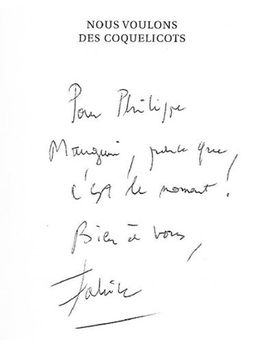 NOUS VOULONS
DES COQUELICOTS
Pour Philippe
Mauguin, parce que,
c'est le moment !
Bien à vous,
Fabrice